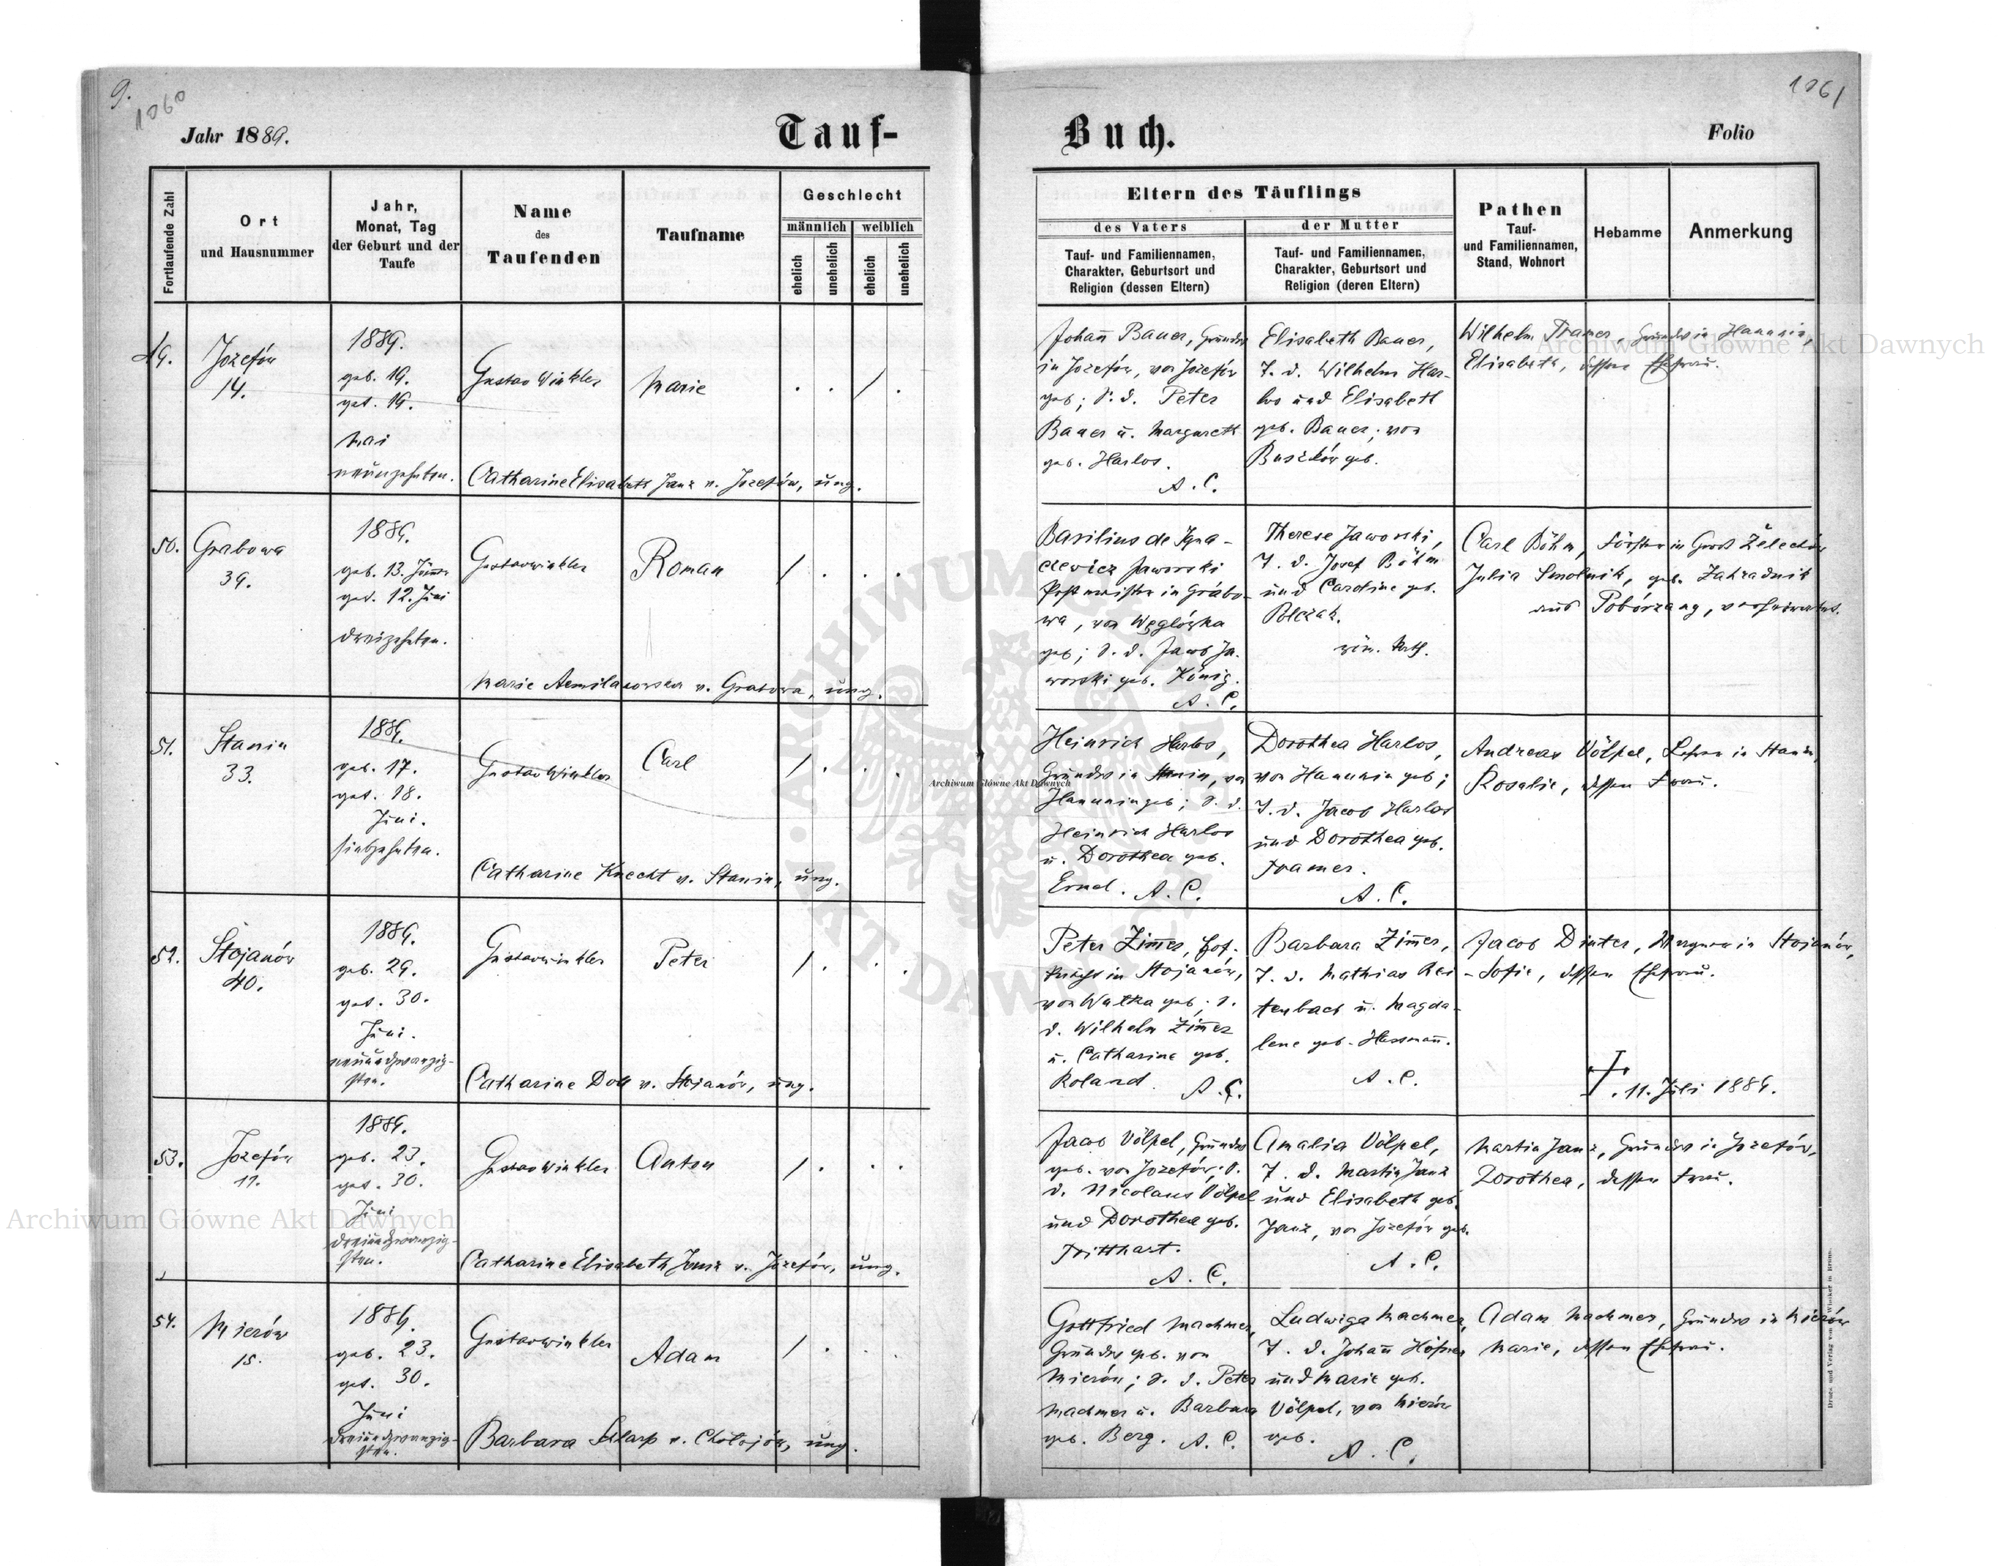 9.
1060
1061
Jahr 1889.
Tauf-
Buch.
Folio
Fortlaufende Zahl
Ort
und Hausnummer
Jahr,
Monat, Tag
der Geburt und der
Taufe
Name
des
Taufenden
Taufname
Geschlecht
männlich
weiblich
ehelich
unehelich
ehelich
unehelich
Eltern des Täuflings
des Vaters
der Mutter
Tauf- und Familiennamen,
Charakter, Geburtsort und
Religion (dessen Eltern)
Tauf- und Familiennamen,
Charakter, Geburtsort und
Religion (deren Eltern)
Pathen
Tauf-
und Familiennamen,
Stand, Wohnort
Hebamme
Anmerkung
49.
Jozefów
14.
1889.
geb. 19.
get. 19.
Mai
neunzehnten.
Gustav Winkler
Marie
Catharine Elisabeth Janz v. Jozefów, ung.
Johañ Bauer, Grundw
in Jozefów, von Jozefów
geb; S. d. Peter
Bauer u. Margareth
geb. Harlos.
A. C.
Elisabeth Bauer,
T. d. Wilhelm Har-
los und Elisabeth
geb. Bauer; von
geb.
Wilhelm Tramer, Grundw in Hanunin,
Elisabeth, dessen Ehefrau.
50.
Grabowa
39.
1889.
geb. 13. Jänner
get. 12. Juni
dreizehnten.
Gustav Winkler
Roman
Marie v. Grabowa, ung.
Basilius de Igna-
cewicz Jaworski
Postmeister in Grabo-
wa, von Węglówka
geb; S. d. Jacob Ja-
worski geb. König.
A. C.
Therese Jaworski,
T. d. Josef Böhm
und Caroline geb.
röm. kath.
Carl Böhm, Förster in Gross Żelechów
Julia Smolnik, geb. Zahradnik
aus
51.
Stanin
33.
1889.
geb. 17.
get. 18.
Juni.
siebzehnten.
Gustav Winkler
Carl
Catharine Knecht v. Stanin, ung.
Heinrich Harlos,
Grundw in Stanin, von
Hanunin geb; S. d.
Heinrich Harlos
u. Dorothea geb.
A. C.
Dorothea Harlos,
von Hanunin geb;
T. d. Jacob Harlos
und Dorothea geb.
Tramer.
A. C.
Andreas Völpel, Lehrer in Stanin,
Rosalie, dessen Frau.
52.
Stojanów
40.
1889.
geb. 29.
get. 30.
Juni.
neunundzwanzig-
sten.
Gustav Winkler
Peter
Catharine Doll v. Stojanów, ung.
Peter Zim̃er, Hof-
knecht in Stojanów,
von Wulka geb. S.
d. Wilhelm Zim̃er
u. Catharine geb.
Roland. A. C.
Barbara Zim̃er,
T. d. Mathias Rei-
tenbach u. Magda-
lene geb.
A. C.
Jacob Dinter, Wagner in Stojanów,
Sofie, dessen Ehefrau.
† 11. Juli 1889.
53.
Jozefów
11.
1889.
geb. 23.
get. 30.
Juni
dreiundzwanzig-
sten.
Gustav Winkler
Anton
Catharine Elisabeth Janz v. Jozefów, ung.
Jacob Völpel, Grundw
geb. von Jozefów; S.
d. Nicolaus Völpel
und Dorothea geb.
Tritthart.
A. C.
Amalia Völpel,
T. d. Martin Janz
und Elisabeth geb.
Janz, von Jozefów geb.
A. C.
Martin Janz, Grundw in Jozefów,
Dorothea, dessen Frau.
54.
Mierów
15.
1889.
geb. 23.
get. 30.
Juni
dreiundzwanzig-
sten.
Gustav Winkler
Adam
Barbara Scharp v. Chołojów, ung.
Gottfried Machmer,
Grundw geb. von
Mierów; S. d. Peter
Machmer u. Barbara
geb. Berg. A. C.
Ludwiga Machmer,
T. d. Johañ
und Marie geb.
Völpel, von Mierów
geb.
A. C.
Adam Machmer, Grundw in Mierów
Marie, dessen Ehefrau.
Archiwum Główne Akt Dawnych
Archiwum Główne Akt Dawnych
Archiwum Główne Akt Dawnych
ARCHIWUM GŁÓWNE AKT DAWNYCH